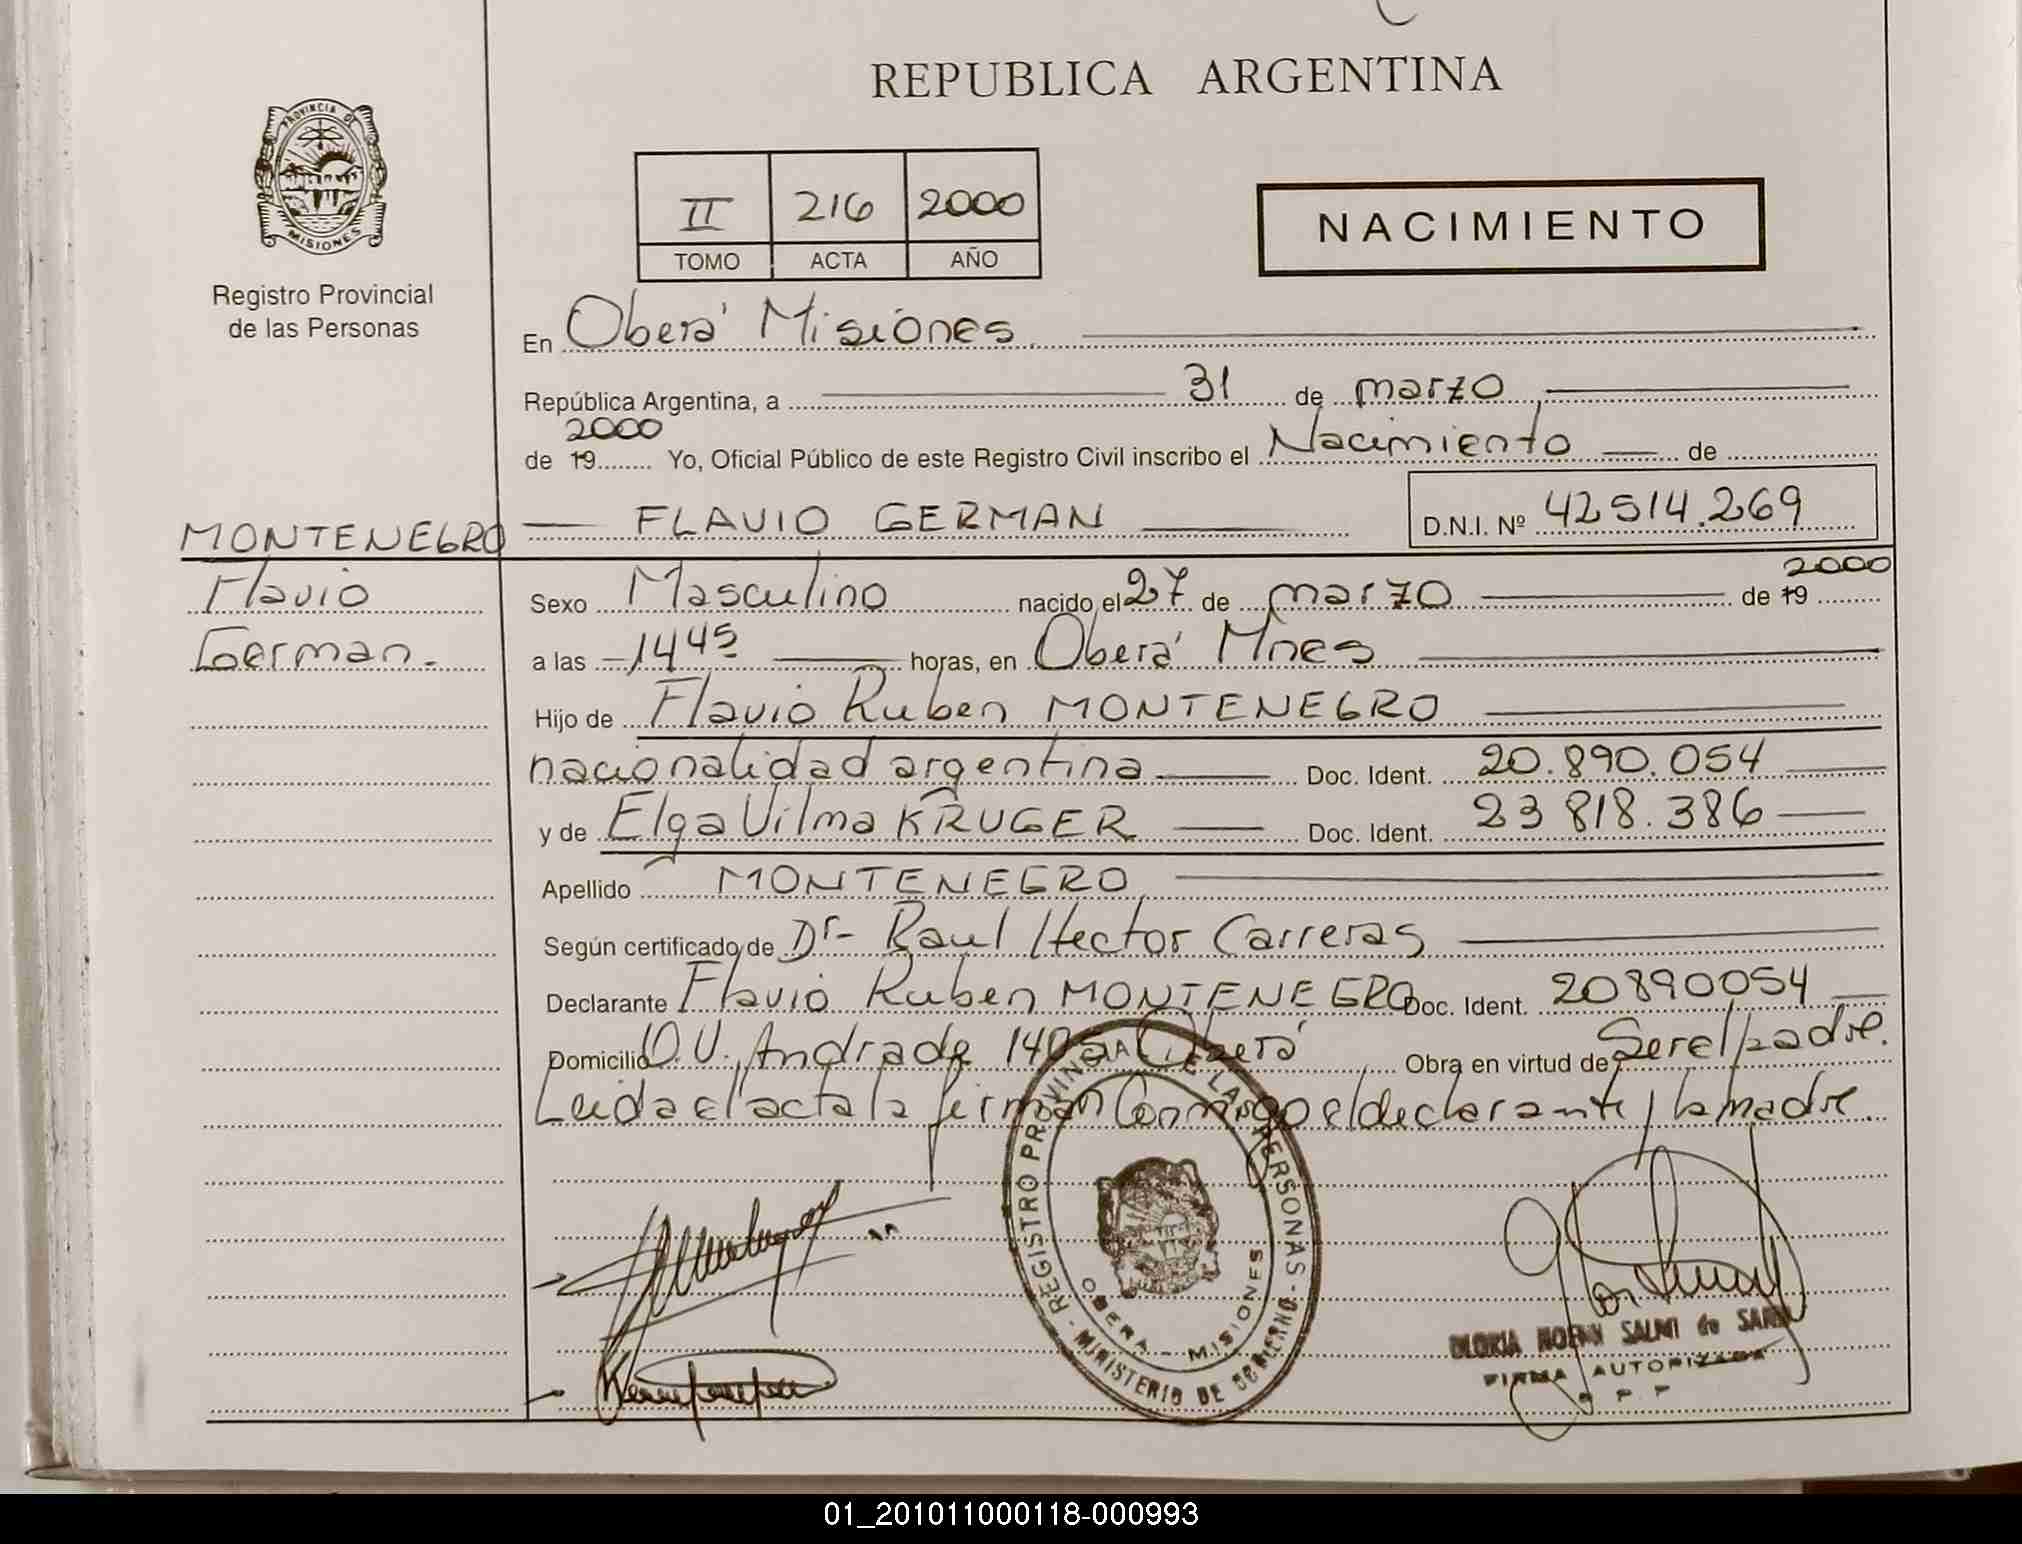 REPUBLICA ARGENTINA
PROVINCIA DE
MISIONES
Registro Provincial
de las Personas
II 216 2000
TOMO ACTA AÑO
NACIMIENTO
En Oberá Misiones
República Argentina, a 31 de marzo
2000
de 19 Yo, Oficial Público de este Registro Civil inscribo el Nacimiento de
FLAVIO GERMAN D.N.I. Nº 42514.269
MONTENEGRO
Flavio
German.
2000
Sexo Masculino nacido el 27 de marzo de 19
a las 14 45 horas, en Oberá Mnes
Hijo de Flavio Ruben MONTENEGRO
nacionalidad argentina Doc. Ident. 20.890.054
y de Elga Vilma KRUGER Doc. Ident. 23 818.386
Apellido MONTENEGRO
Según certificado de Dr- Raul Hector Carreras
Declarante Flavio Ruben MONTENEGRO Doc. Ident. 20890054
Domicilio O.V. Andrade 1405 Oberá Obra en virtud de Ser el padre.
Leida el acta la firman Conmigo el declarante y la madre.
REGISTRO PROVINCIAL DE LAS PERSONAS - MINISTERIO DE GOBIERNO
OBERA - MISIONES
GLORIA NOEMI SALMI de
FIRMA AUTORIZADA
R. P. P
01_201011000118-000993